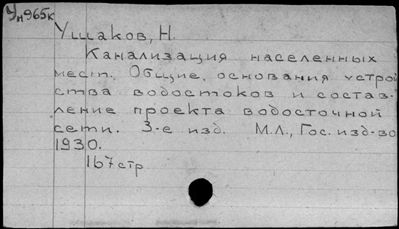 Ун965к
Ушаков, Н.
Канализация населенных
мест. Общие основания устрой
ства водостоков и состав-
ление проекта водосточной
сети. 3-е изд. М.Л., Гос. изд-во
1930.
167 стр